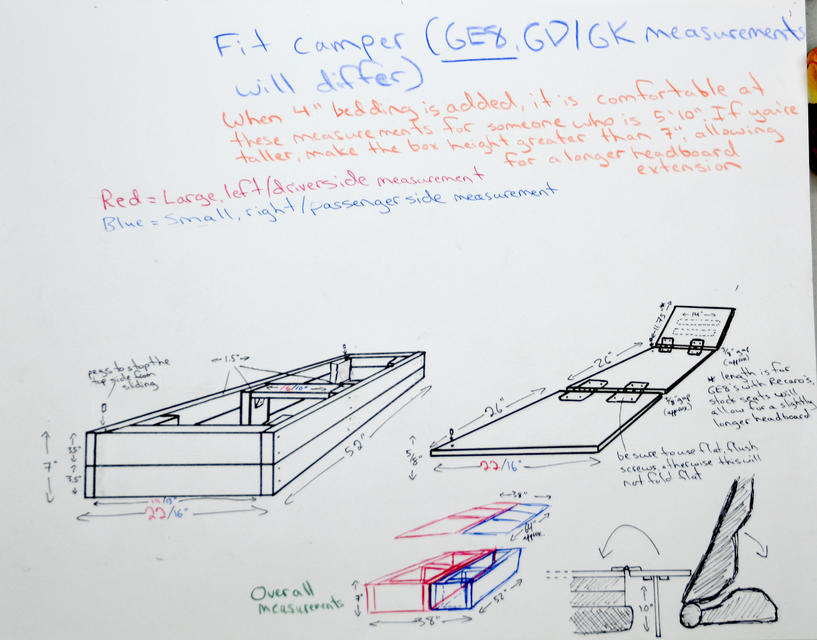 Fit camper (GE8, GD/GK measurements
will differ)
When 4" bedding is added, it is comfortable at
these measurements for someone who is 5'10". If you're
taller, make the box height greater than 7", allowing
for a longer headboard
extension
Red = Large, left/driverside measurement
Blue = Small, right/passenger side measurement
pegs to stop the
top side from
sliding
1.5"
16/10"
7"
3.5"
3.5"
52"
22/16"
14"
11.75"
*
26"
26"
3/8" gap
(approx)
3/8" gap
(approx)
* length is for
GE8's with Recaro's,
stock seats will
allow for a slightly
longer headboard
5/8"
22/16"
be sure to use flat, flush
screws, otherwise this will
not fold flat
38"
64"
approx
Overall
measurements
7"
52"
38"
10"